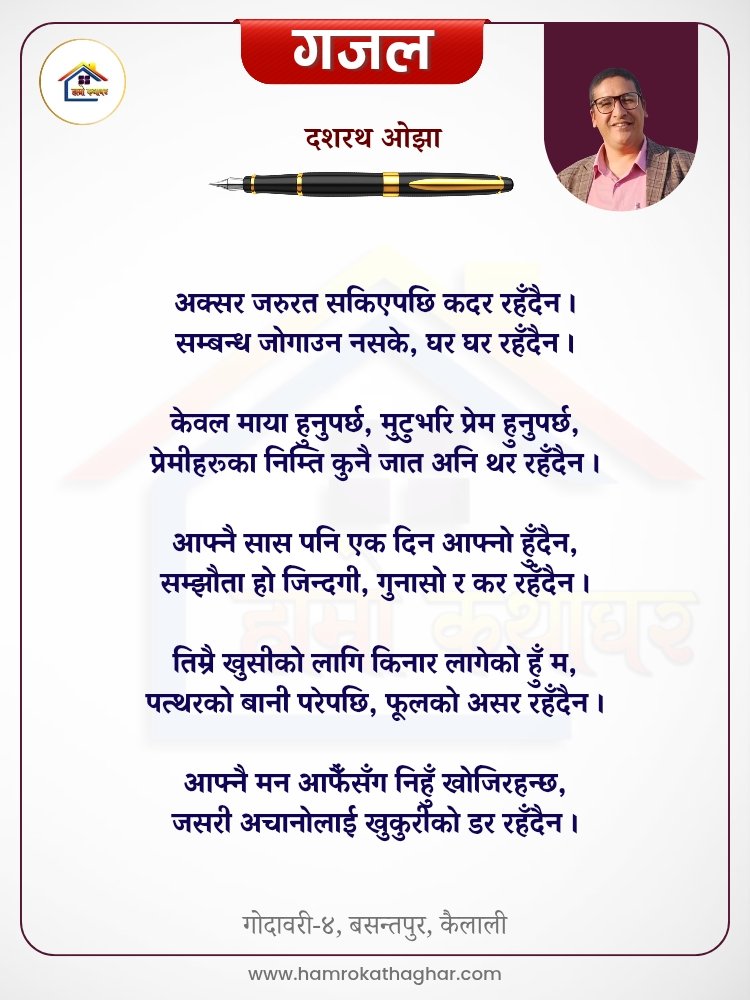 गजल
हाम्रो कथाघर
दशरथ ओझा
अक्सर जरुरत सकिएपछि कदर रहँदैन ।
सम्बन्ध जोगाउन नसके, घर घर रहँदैन ।
केवल माया हुनुपर्छ, मुटुभरि प्रेम हुनुपर्छ,
प्रेमीहरूका निम्ति कुनै जात अनि थर रहँदैन ।
आफ्नै सास पनि एक दिन आफ्नो हुँदैन,
सम्झौता हो जिन्दगी, गुनासो र कर रहँदैन ।
तिम्रै खुसीको लागि किनार लागेको हुँ म,
पत्थरको बानी परेपछि, फूलको असर रहँदैन ।
आफ्नै मन आफैँसँग निहुँ खोजिरहन्छ,
जसरी अचानोलाई खुकुरीको डर रहँदैन ।
हाम्रो कथाघर
गोदावरी-४, बसन्तपुर, कैलाली
www.hamrokathaghar.com